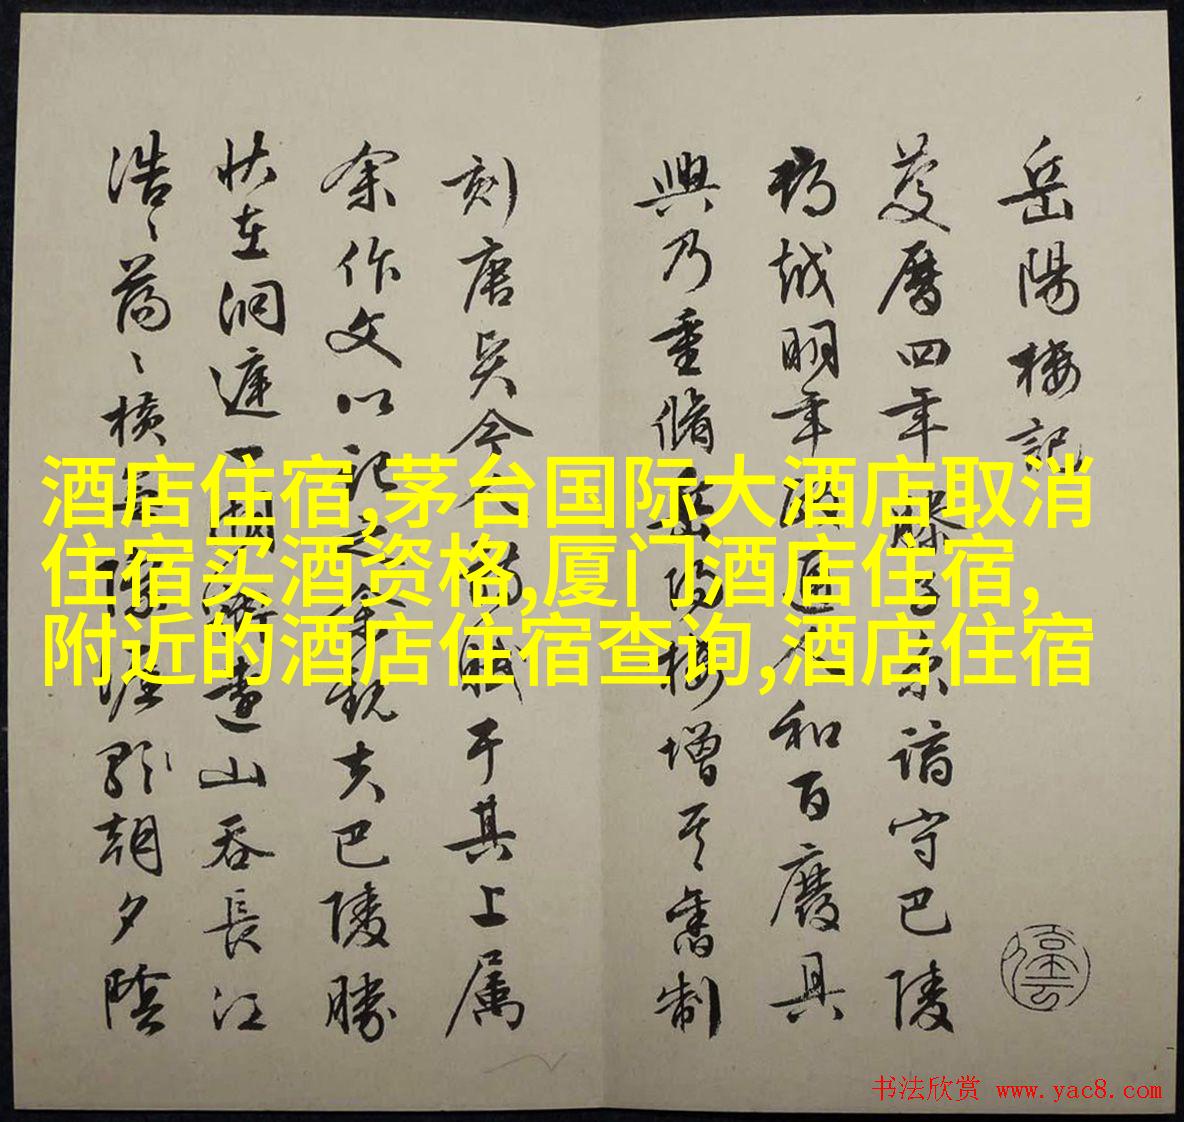 岳陽樓記
慶曆四年滕子京謫守巴陵
郡越明年政通人和百廢具
興乃重脩岳陽樓增其舊制
刻唐賢今人詩賦于其上屬
余作文以記之余觀夫巴陵勝
狀在洞庭一湖銜遠山吞長江
浩〻蕩〻橫無際涯朝夕陰
酒店住宿,茅台国际大酒店取消
住宿买酒资格,厦门酒店住宿,
附近的酒店住宿查询,酒店住宿
书法欣赏 www.yac8.com